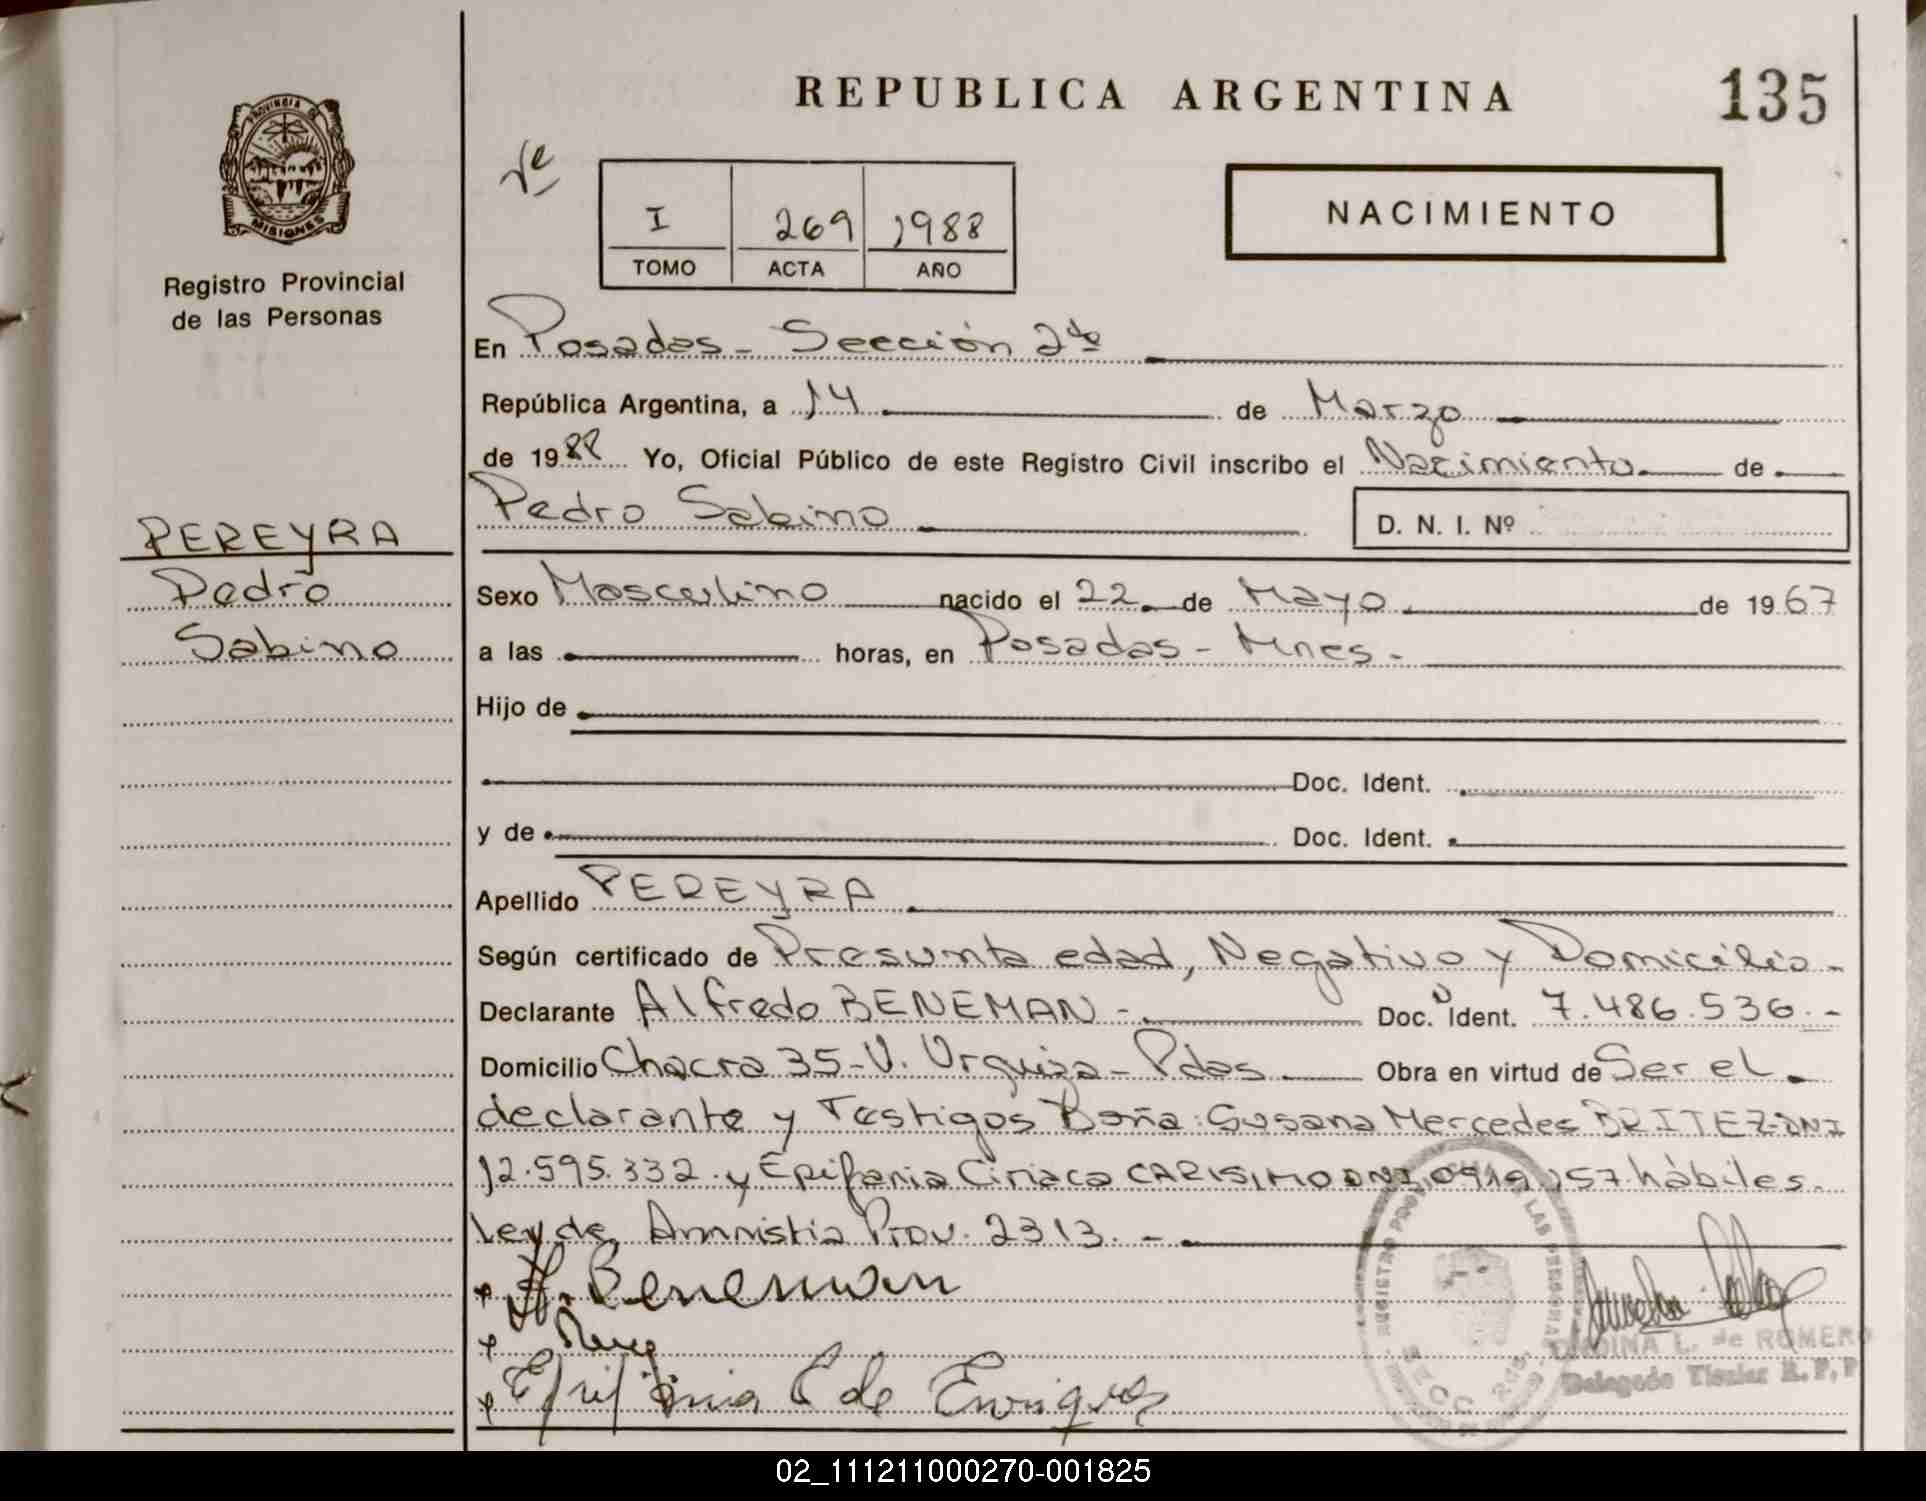 REPUBLICA ARGENTINA
135
PROVINCIA DE
MISIONES
Registro Provincial
de las Personas
I 269 1988
TOMO ACTA AÑO
NACIMIENTO
En Posadas - Sección 2da
República Argentina, a 14 de Marzo
de 1988 Yo, Oficial Público de este Registro Civil inscribo el Nacimiento de
Pedro Sabino
D. N. I. Nº
PEREYRA
Pedro
Sabino
Sexo Masculino nacido el 22 de Mayo de 1967
a las horas, en Posadas - Mnes.
Hijo de
Doc. Ident.
y de Doc. Ident.
Apellido PEREYRA
Según certificado de Presunta edad, Negativo y Domicilio -
Declarante Alfredo BENEMAN - Doc. Ident. 7.486.536.-
Domicilio Chacra 35-V. Urquiza - Pdas Obra en virtud de Ser el
declarante y Testigos Doña: Susana Mercedes BRITEZ-DNI
12.595.332. y Epifania Ciriaca CARISIMO DNI 157 hábiles.
Ley de Amnistia Prov. 2313. -
A. Beneman
Epifania C de Enriquez
REGISTRO LAS PERSONAS
SECC 2da.
L. de ROMERO
Delegado Titular R. P. P
02_111211000270-001825